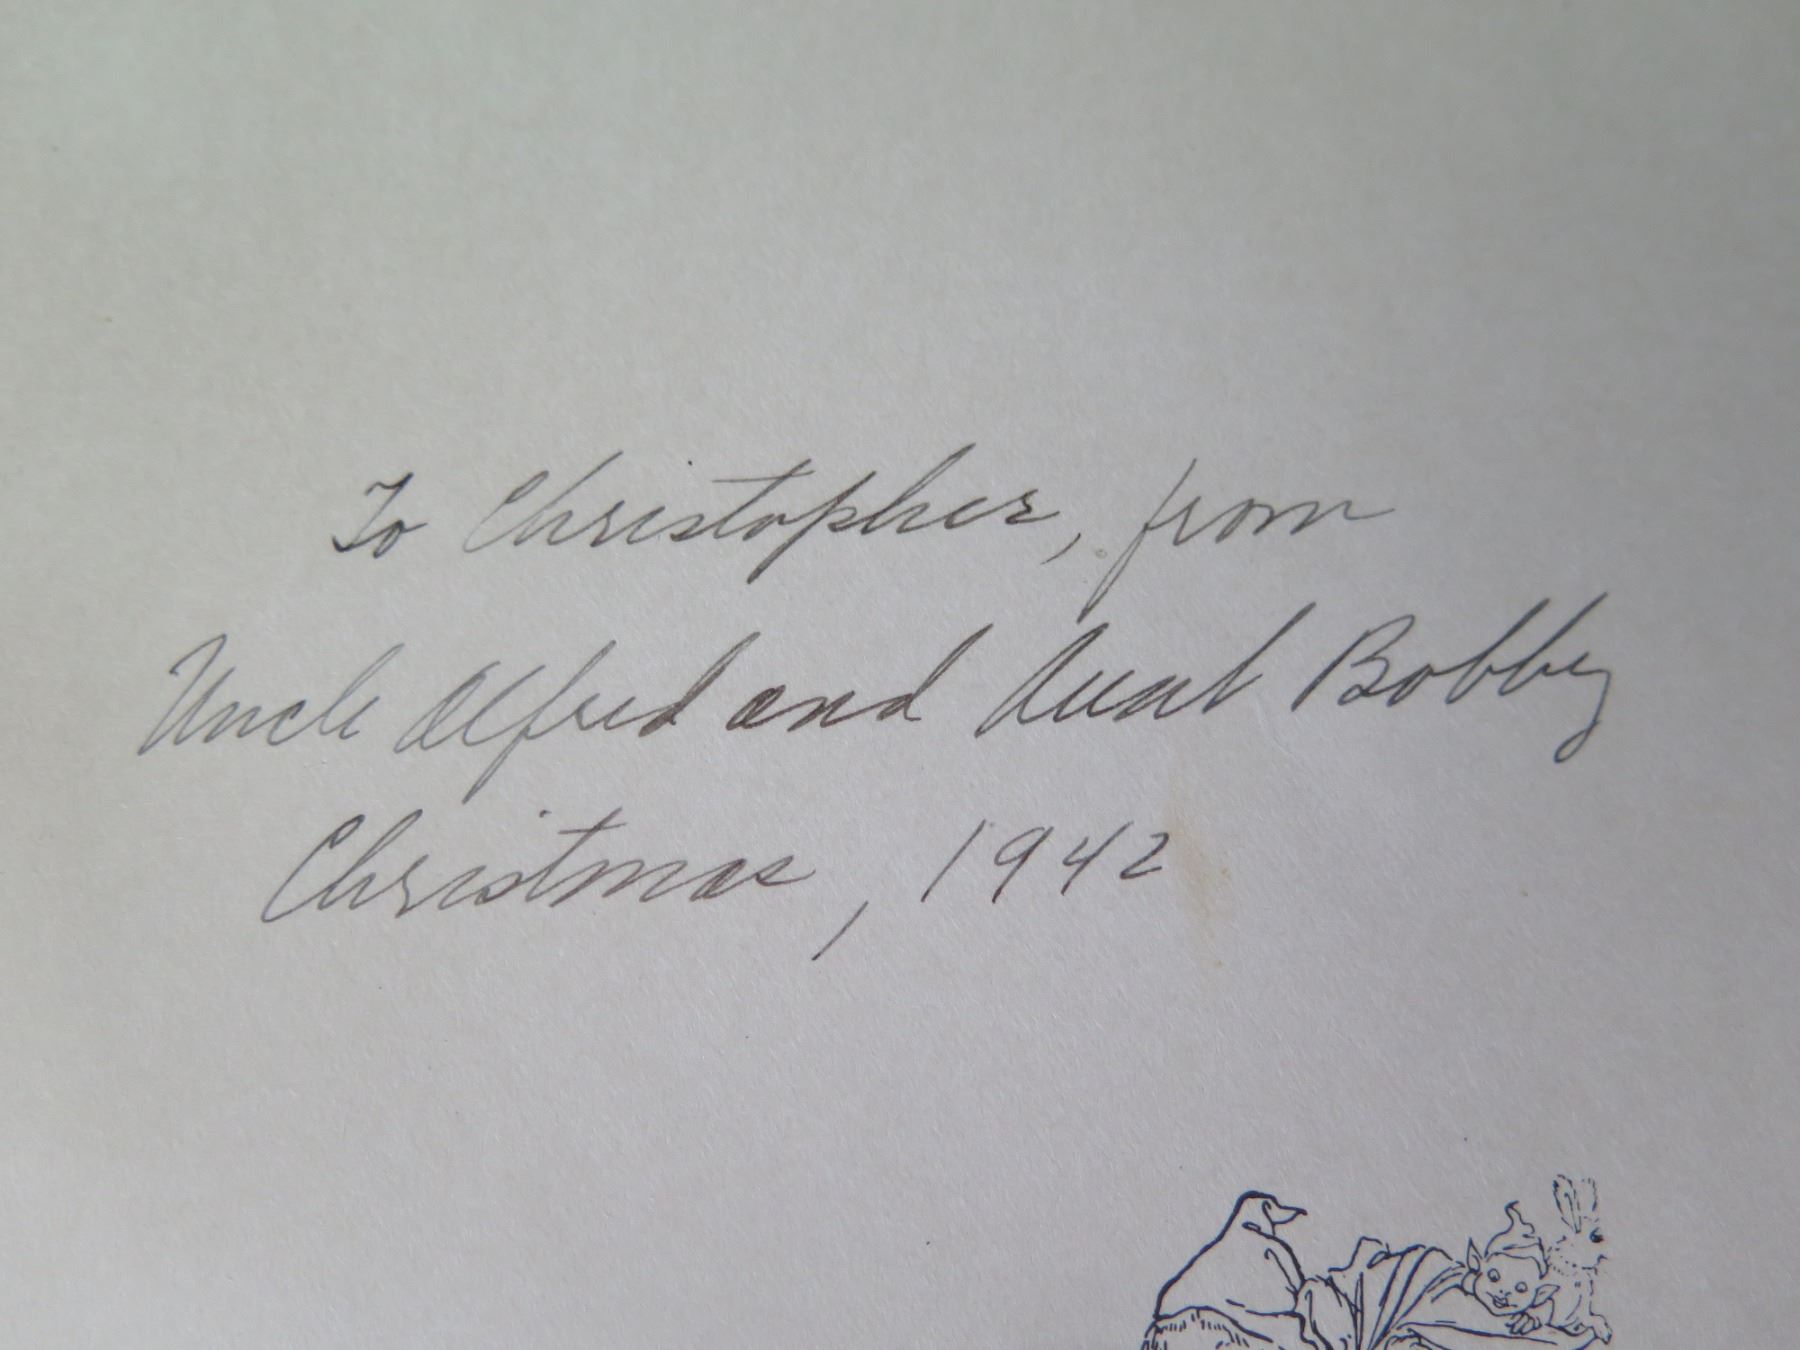 To Christopher, from
Uncle Alfred and Aunt Bobby
Christmas, 1942